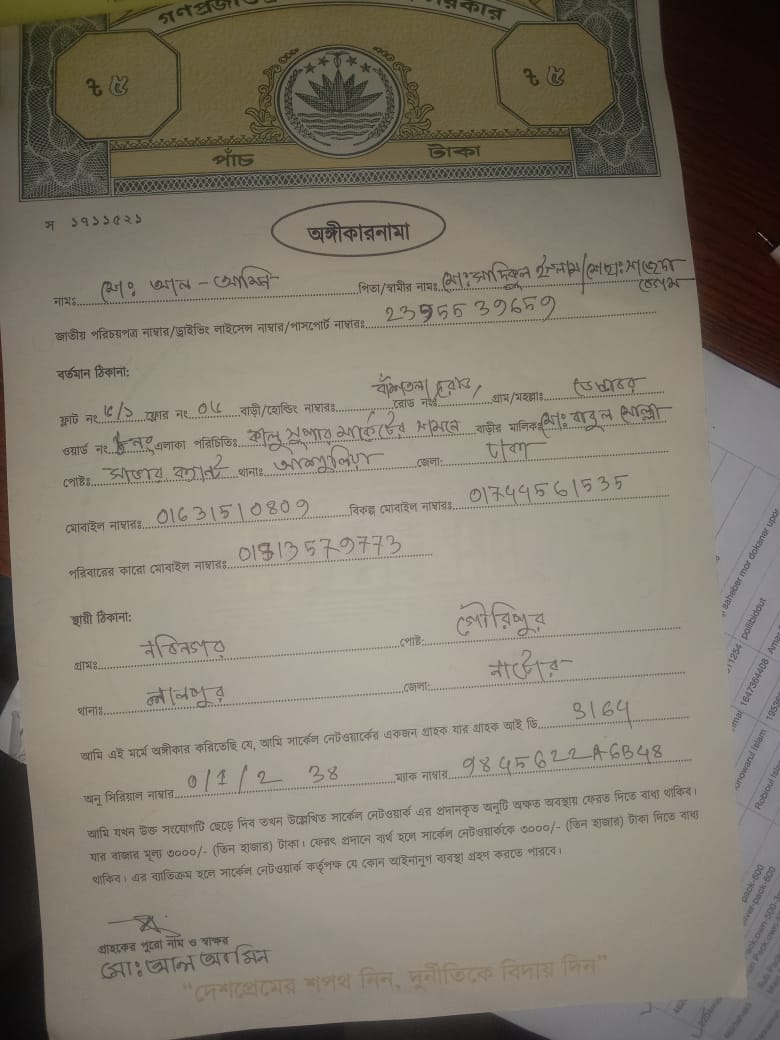 গণপ্রজা
রকার
৳ ৫
৳ ৫
পাঁচ টাকা
স ১৭১১৫২১
অঙ্গীকারনামা
নামঃ মোঃ আল-আমিন পিতা/স্বামীর নামঃ মোঃ সাদিকুল ইসলাম/মোছাঃ
বেগম
জাতীয় পরিচয়পত্র নাম্বার/ড্রাইভিং লাইসেন্স নাম্বার/পাসপোর্ট নাম্বারঃ 2395539659
বর্তমান ঠিকানা:
ফ্লাট নং ৫/১ ফ্লোর নং 0৫ বাড়ী/হোল্ডিং নাম্বারঃ বাঁশতলা রোড, রোড নংঃ গ্রাম/মহল্লাঃ
ওয়ার্ড নং নং এলাকা পরিচিতিঃ কালু সুপার মার্কেটের সামনে বাড়ীর মালিকঃ মোঃ বাবুল মোল্লা
পোষ্টঃ সাভার ক্যান্ট থানাঃ আশুলিয়া জেলা: ঢাকা
মোবাইল নাম্বারঃ 01631510809 বিকল্প মোবাইল নাম্বারঃ 01744561535
পরিবারের কারো মোবাইল নাম্বারঃ 01313579773
স্থায়ী ঠিকানা:
গ্রামঃ পোষ্ট: গৌরিপুর
থানাঃ লালপুর জেলা: নাটোর
আমি এই মর্মে অঙ্গীকার করিতেছি যে, আমি সার্কেল নেটওয়ার্কের একজন গ্রাহক যার গ্রাহক আই ডি 3164
অনু সিরিয়াল নাম্বার 0/1/2 38 ম্যাক নাম্বার 9845622A6B48
আমি যখন উক্ত সংযোগটি ছেড়ে দিব তখন উল্লেখিত সার্কেল নেটওয়ার্ক এর প্রদানকৃত অনুটি অক্ষত অবস্থায় ফেরত দিতে বাধ্য থাকিব।
যার বাজার মূল্য ৩০০০/- (তিন হাজার) টাকা। ফেরৎ প্রদানে ব্যর্থ হলে সার্কেল নেটওয়ার্ককে ৩০০০/- (তিন হাজার) টাকা দিতে বাধ্য
থাকিব। এর ব্যতিক্রম হলে সার্কেল নেটওয়ার্ক কর্তৃপক্ষ যে কোন আইনানুগ ব্যবস্থা গ্রহণ করতে পারবে।
গ্রাহকের পুরো নাম ও স্বাক্ষর
মোঃ আল আমিন
“দেশপ্রেমের শপথ নিন, দুর্নীতিকে বিদায় দিন”
saheber mor dokaner upor
11254 pollibiddut
1647364408
Robiul Isla